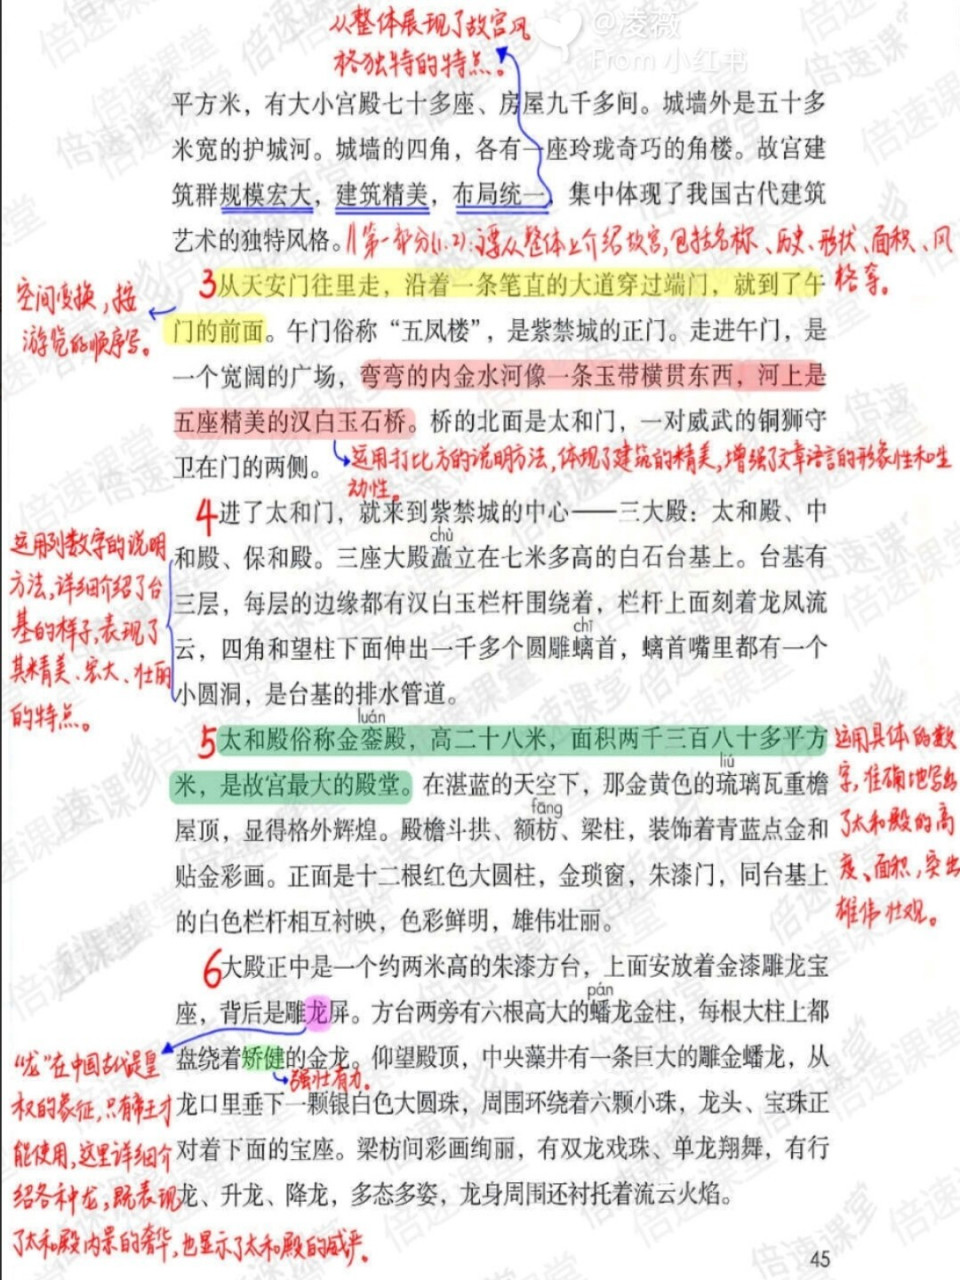 从整体展现了故宫风
格独特的特点。
@凌薇
From 小红书
平方米，有大小宫殿七十多座、房屋九千多间。城墙外是五十多
米宽的护城河。城墙的四角，各有一座玲珑奇巧的角楼。故宫建
筑群规模宏大，建筑精美，布局统一，集中体现了我国古代建筑
艺术的独特风格。
第一部分(1、2)：主要从整体上介绍故宫，包括名称、历史、形状、面积、风
格等。
空间变换，按
游览的顺序写。
3从天安门往里走，沿着一条笔直的大道穿过端门，就到了午
门的前面。午门俗称“五凤楼”，是紫禁城的正门。走进午门，是
一个宽阔的广场，弯弯的内金水河像一条玉带横贯东西，河上是
五座精美的汉白玉石桥。桥的北面是太和门，一对威武的铜狮守
卫在门的两侧。
运用打比方的说明方法，体现了建筑的精美，增强了文章语言的形象性和生
动性。
4进了太和门，就来到紫禁城的中心——三大殿：太和殿、中
chù
和殿、保和殿。三座大殿矗立在七米多高的白石台基上。台基有
三层，每层的边缘都有汉白玉栏杆围绕着，栏杆上面刻着龙凤流
chī
云，四角和望柱下面伸出一千多个圆雕螭首，螭首嘴里都有一个
小圆洞，是台基的排水管道。
运用列数字的说明
方法，详细介绍了台
基的样子，表现了
其精美、宏大、壮丽
的特点。
luán
5太和殿俗称金銮殿，高二十八米，面积两千三百八十多平方
liú
米，是故宫最大的殿堂。在湛蓝的天空下，那金黄色的琉璃瓦重檐
fāng
屋顶，显得格外辉煌。殿檐斗拱、额枋、梁柱，装饰着青蓝点金和
贴金彩画。正面是十二根红色大圆柱，金琐窗，朱漆门，同台基上
的白色栏杆相互衬映，色彩鲜明，雄伟壮丽。
运用具体的数
字，准确地写出
了太和殿的高
度、面积，突出
雄伟壮观。
6大殿正中是一个约两米高的朱漆方台，上面安放着金漆雕龙宝
pán
座，背后是雕龙屏。方台两旁有六根高大的蟠龙金柱，每根大柱上都
盘绕着矫健的金龙。仰望殿顶，中央藻井有一条巨大的雕金蟠龙，从
强壮有力。
龙口里垂下一颗银白色大圆珠，周围环绕着六颗小珠，龙头、宝珠正
对着下面的宝座。梁枋间彩画绚丽，有双龙戏珠、单龙翔舞，有行
龙、升龙、降龙，多态多姿，龙身周围还衬托着流云火焰。
“龙”在中国古代是皇
权的象征，只有帝王才
能使用，这里详细介
绍各种龙，既表现
了太和殿内景的奢华，也显示了太和殿的威严。
45
倍速课堂